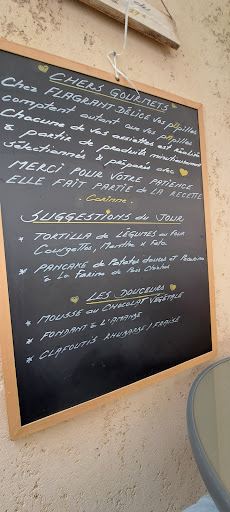 CHERS GOURMETS
Chez FLAGRANT DÉLICE vos pupilles
comptent autant que vos papilles
Chacune de vos assiettes est réalisée
à partir de produits minutieusement
sélectionnés & préparés avec
MERCI POUR VOTRE PATIENCE
ELLE FAIT PARTIE DE LA RECETTE
Corinne
SUGGESTIONS du JOUR
* TORTILLA de LÉGUMES au four
Courgettes, Menthe & Feta
* PANCAKE de Patates douces et
à la Farine de Pois Chiches
LES DOUCEURS
* MOUSSE au CHOCOLAT VÉGÉTALE
* FONDANT à L'AMANDE
* CLAFOUTIS RHUBARBE / FRAISE